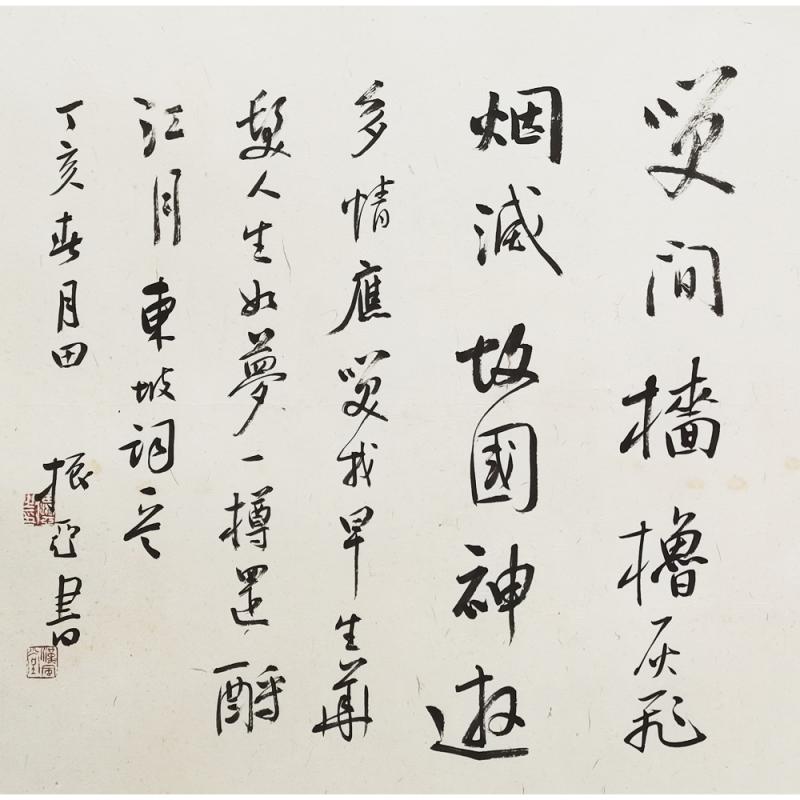 笑间檣櫓灰飛
烟滅故國神遊
多情應笑我早生華
髮人生如夢一樽還酹
江月 東坡詞意
丁亥春月田 振亞書